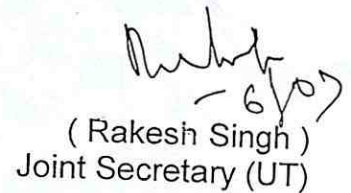 - 6/07
( Rakesh Singh )
Joint Secretary (UT)